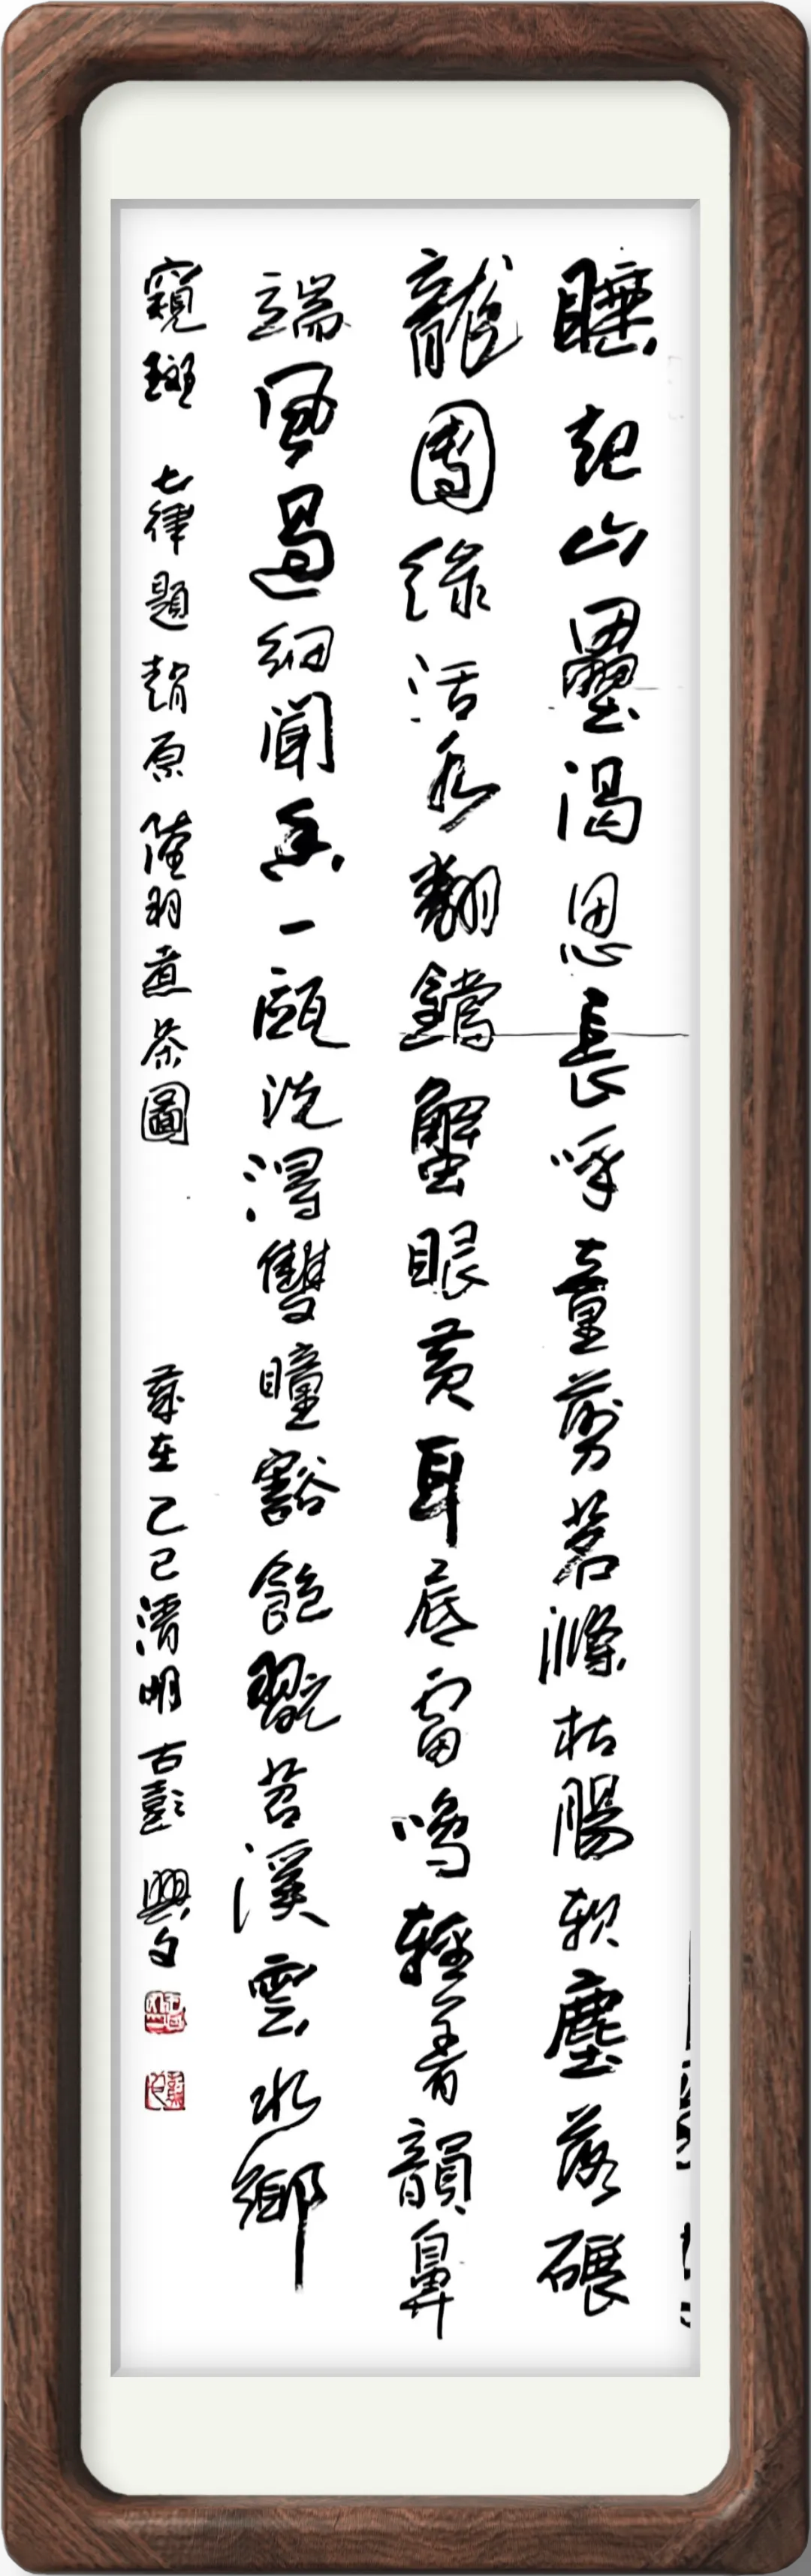 睡起山壘渴思長呼童剪茗滌枯腸軟塵落碾
龍團綠活水翻鐺蟹眼黃耳底雷鳴輕着韻鼻
端風過細聞香一甌洗得雙瞳豁飽翫苕溪雲水鄉
窺斑 七律題趙原陸羽煮茶圖 歲在乙巳清明古彭興文